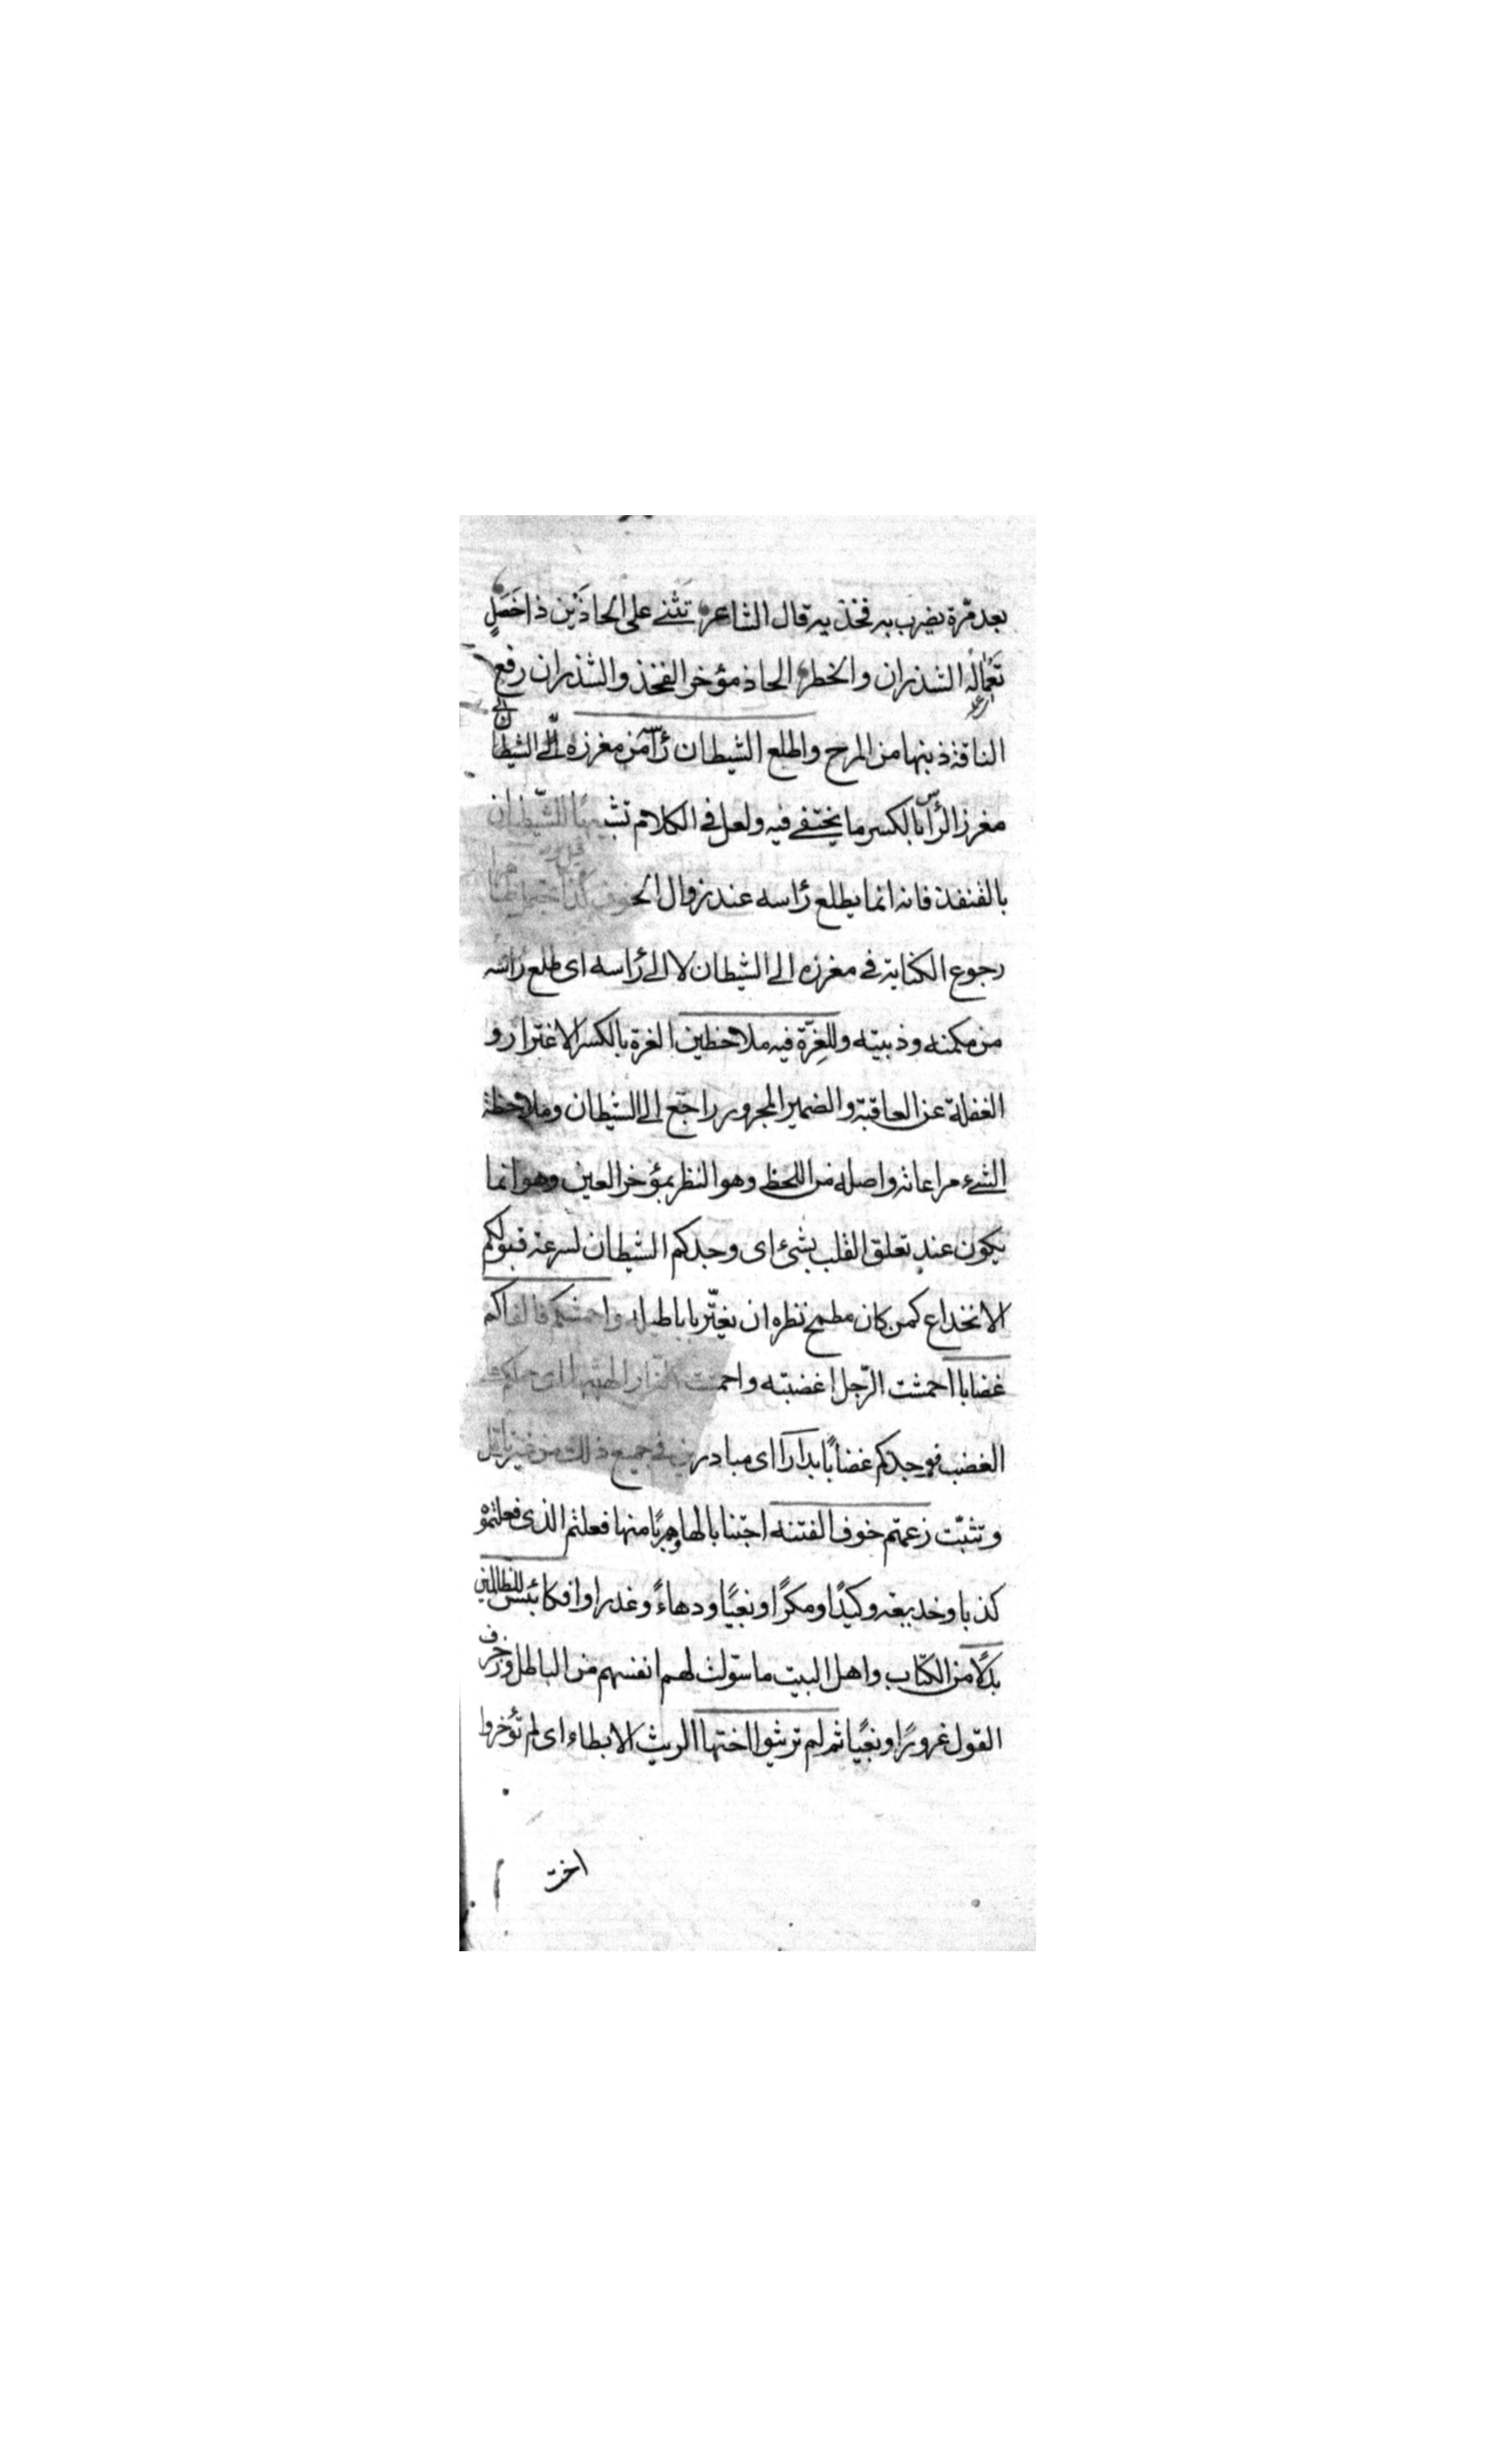 بعد مرّة يضرب به فخذيه قال الشاعر تثنے على الحاذَين ذا خصل
تعماله الشذران والخطر الحاذ مؤخر الفخذ والشذران رفع
الناقة ذنبها من المرح واطلع الشيطان رأسه من مغرزه الے الشيطان
مغرز الرأس بالكسر ما يختفے فيه ولعل فے الكلام تشبيها للشيطان
بالقنفذ فانه انما يطلع رأسه عند زوال الخوف
رجوع الكناية فے مغرزه الے الشيطان لا الے رأسه اى طلع رأسه
من مكمنه وللغِرّة فيه ملاحظين الغرة بالكسر الاغترار و
الغفلة عن العاقبة والضمير المجرور راجع الے الشيطان وملاحظة
الشےء مراعاته واصله من اللحظ وهو النظر بمؤخر العين وهو انما
يكون عند تعلق القلب بشئ اى وجدكم الشيطان لسرعة قبولكم
الانخداع كمن كان مطمح نظره ان يغترّ باباطيله واحمشكم فالفاكم
غضابا احمشت الرّجل اغضبته واحمشت النّار الهبتها اى حملكم علے
الغضب فوجدكم غضابًا بدارًا اى مبادرين فے جميع ذلك من غير تأمّل
وتثبّت زعمتم خوف الفتنة اجتنابا لها وهربًا منها فعلتم الذى فعلتموه
كذبا وخديعة وكيدًا ومكرًا وبغيًا ودهاءً وغدرا وافكا بئس للظالمين
بدلًا من الكتاب واهل البيت ما سوّلت لهم انفسهم من الباطل وزخرف
القول غرورًا وبغيًا ثم لم تريثوا اختها الريث الابطاء اى لم تؤخروا
اخت